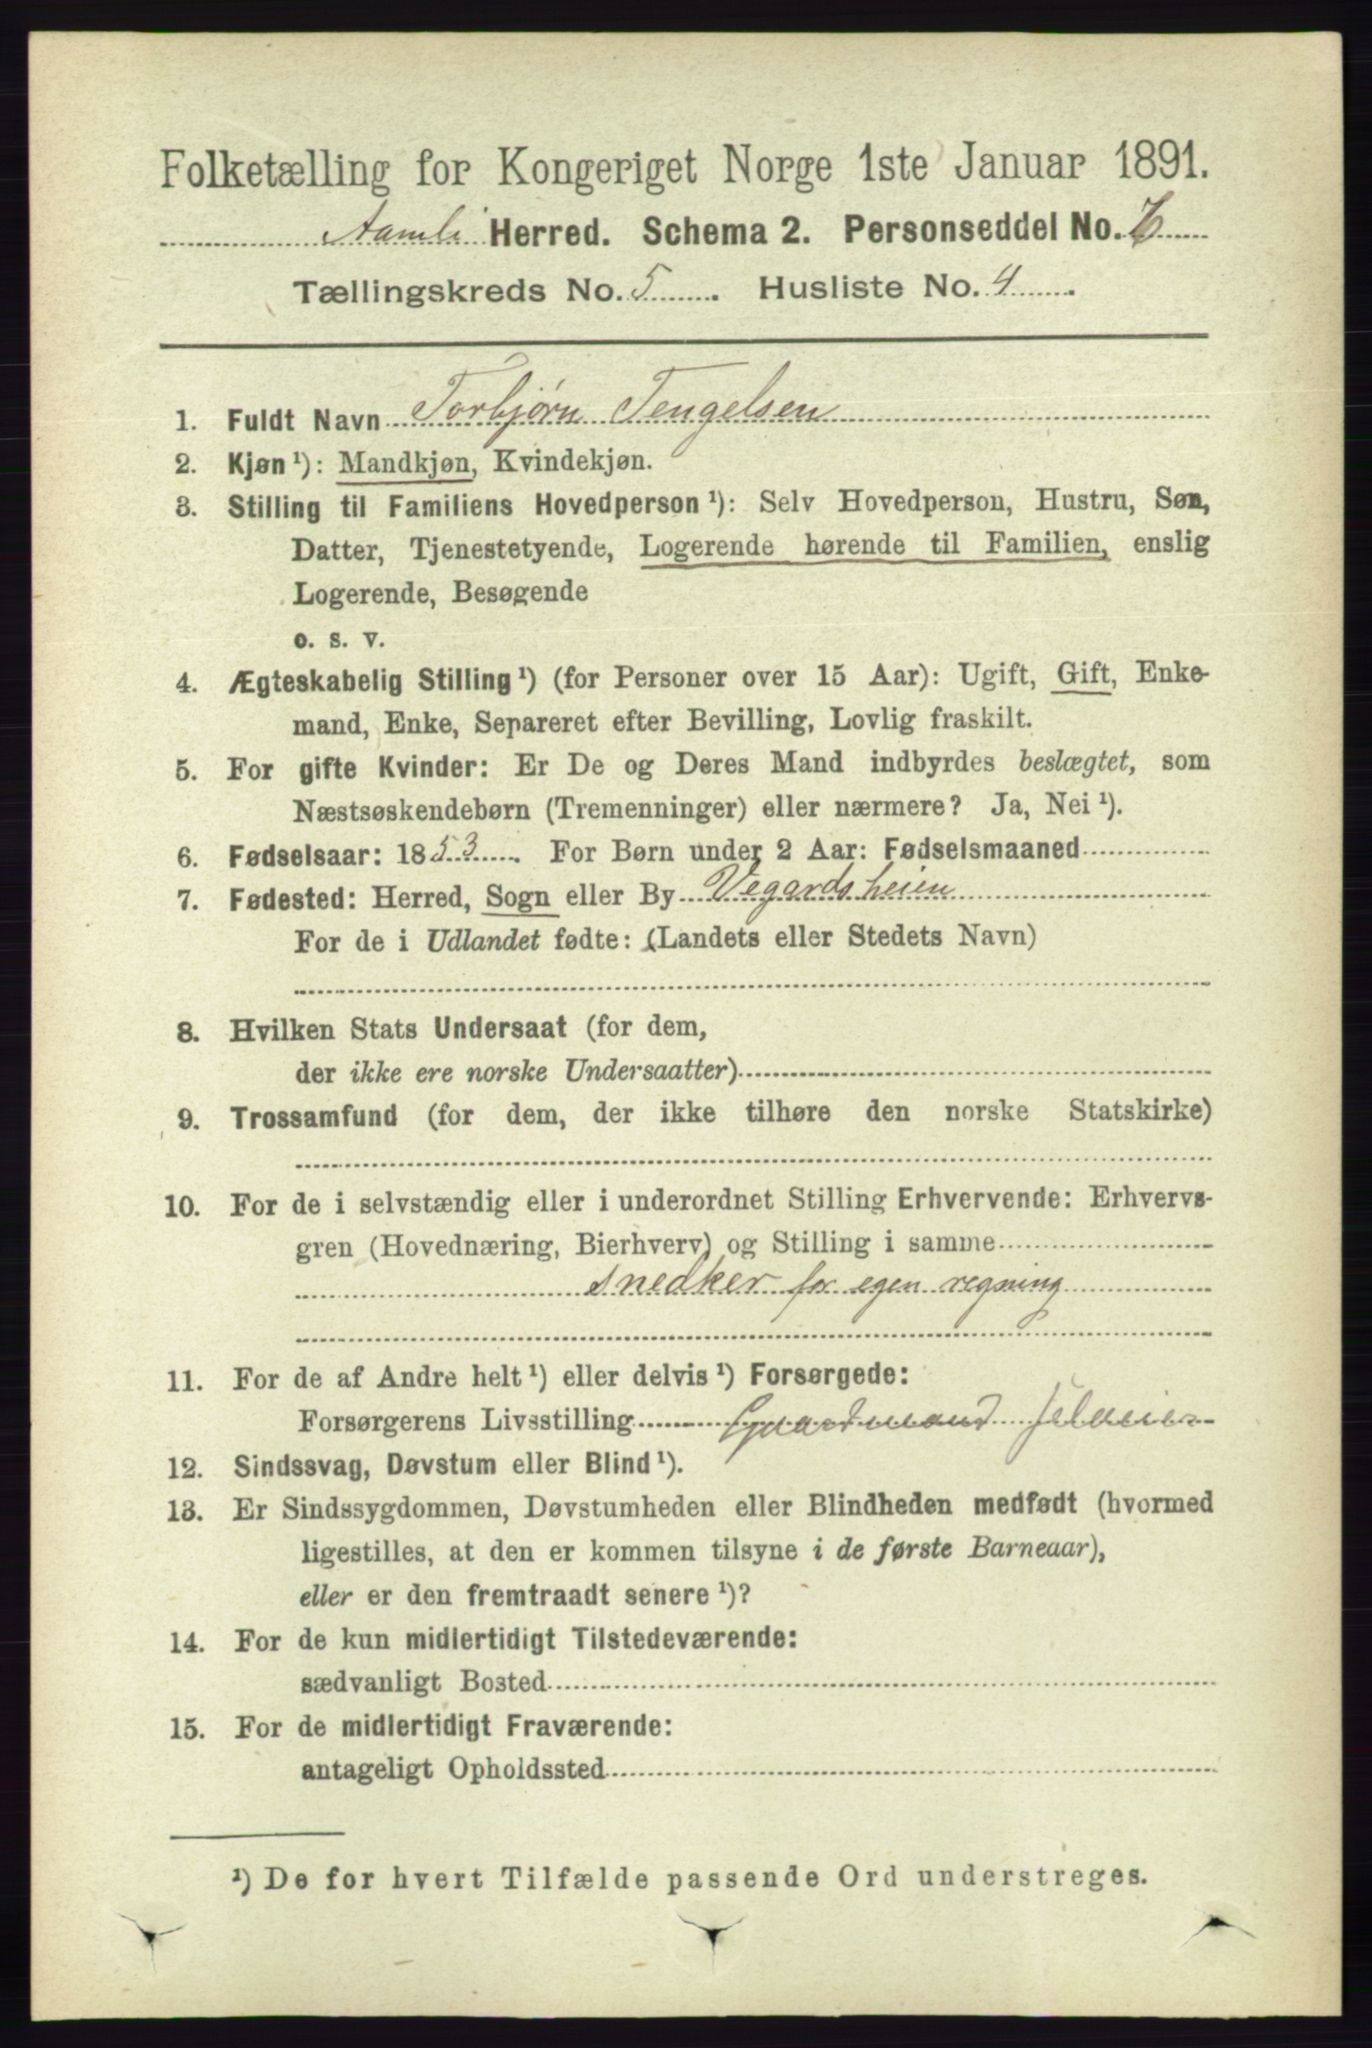 Folketælling for Kongeriget Norge 1ste Januar 1891.
Aamli Herred. Schema 2. Personseddel No.
Tællingskreds No. 5. Husliste No. 4.
1. Fuldt Navn Torbjørn Tengelsen
2. Kjøn ¹): Mandkjøn, Kvindekjøn.
3. Stilling til Familiens Hovedperson ¹): Selv Hovedperson, Hustru, Søn,
Datter, Tjenestetyende, Logerende hørende til Familien, enslig
Logerende, Besøgende
o. s. v.
4. Ægteskabelig Stilling ¹) (for Personer over 15 Aar): Ugift, Gift, Enke-
mand, Enke, Separeret efter Bevilling, Lovlig fraskilt.
5. For gifte Kvinder: Er De og Deres Mand indbyrdes beslægtet, som
Næstsøskendebørn (Tremenninger) eller nærmere? Ja, Nei ¹).
6. Fødselsaar: 1853. For Børn under 2 Aar: Fødselsmaaned
7. Fødested: Herred, Sogn eller By Vegardsheien
For de i Udlandet fødte: (Landets eller Stedets Navn)
8. Hvilken Stats Undersaat (for dem,
der ikke ere norske Undersaatter)
9. Trossamfund (for dem, der ikke tilhøre den norske Statskirke)
10. For de i selvstændig eller i underordnet Stilling Erhvervende: Erhvervs-
gren (Hovednæring, Bierhverv) og Stilling i samme
snedker for egen regning
11. For de af Andre helt ¹) eller delvis ¹) Forsørgede:
Forsørgerens Livsstilling Gaardmand
12. Sindssvag, Døvstum eller Blind ¹).
13. Er Sindssygdommen, Døvstumheden eller Blindheden medfødt (hvormed
ligestilles, at den er kommen tilsyne i de første Barneaar),
eller er den fremtraadt senere ¹)?
14. For de kun midlertidigt Tilstedeværende:
sædvanligt Bosted
15. For de midlertidigt Fraværende:
antageligt Opholdssted
¹) De for hvert Tilfælde passende Ord understreges.